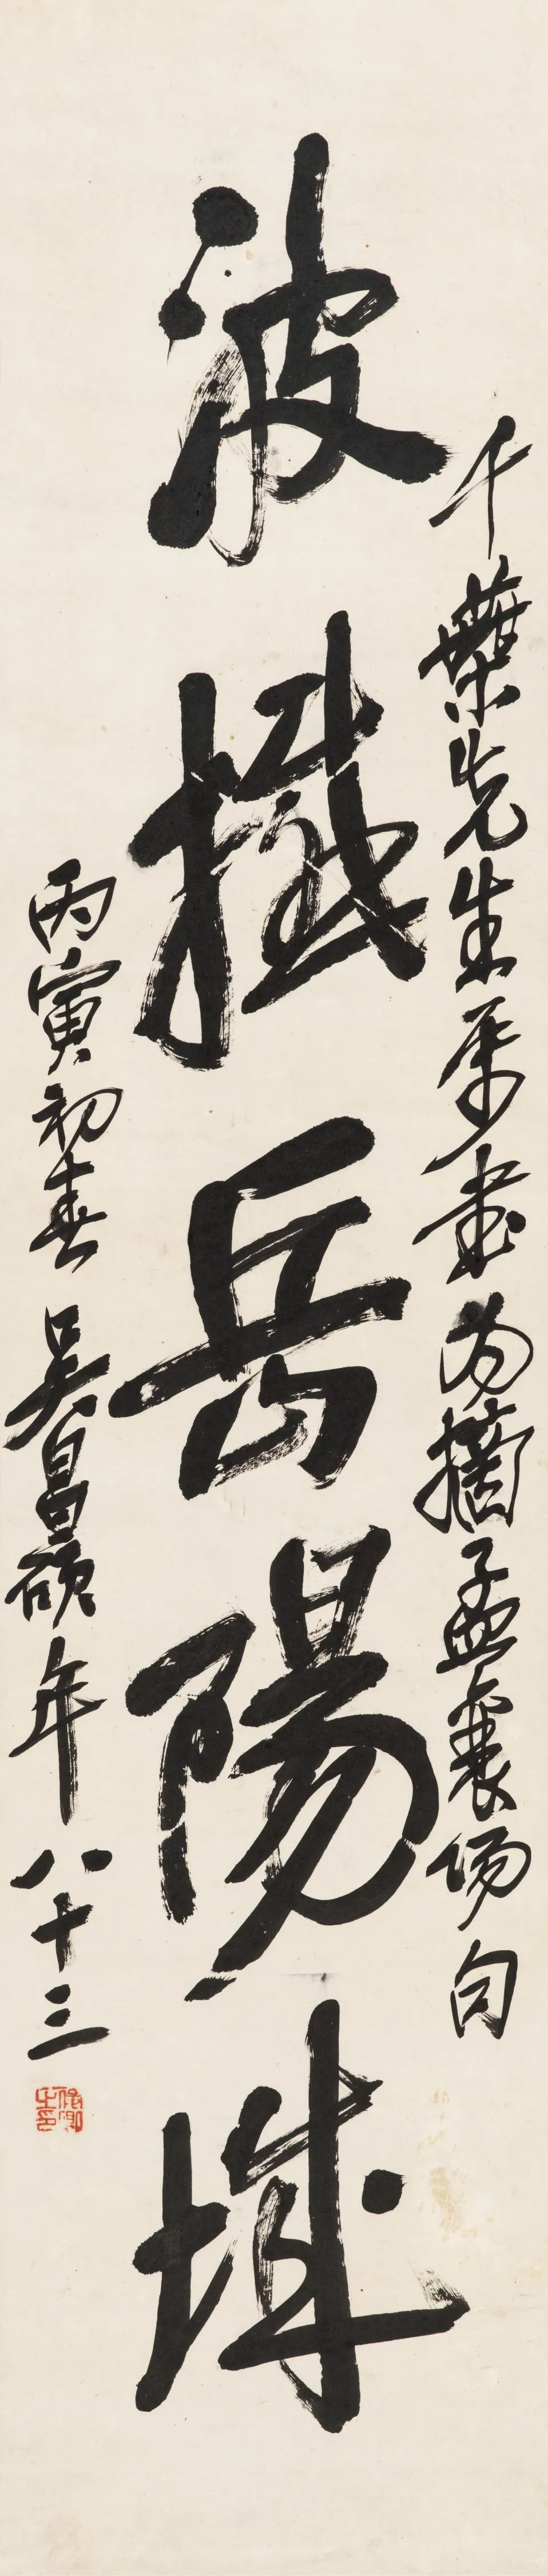 千葉先生属書為摘孟襄陽句
波撼岳陽城
丙寅初春吳昌碩年八十三
俊卿之印